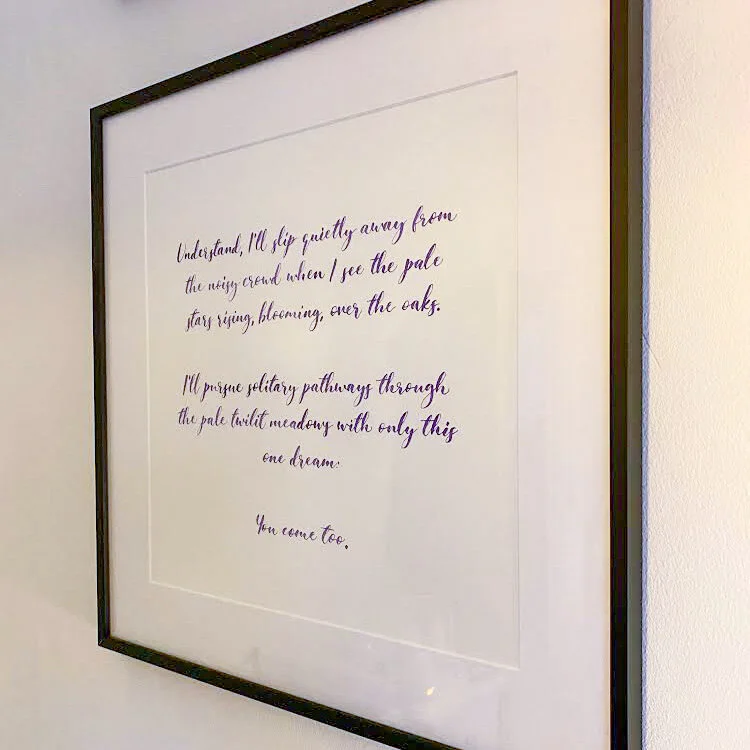 Understand, I'll slip quietly away from
the noisy crowd when I see the pale
stars rising, blooming, over the oaks.
I'll pursue solitary pathways through
the pale twilit meadows with only this
one dream:
You come too.